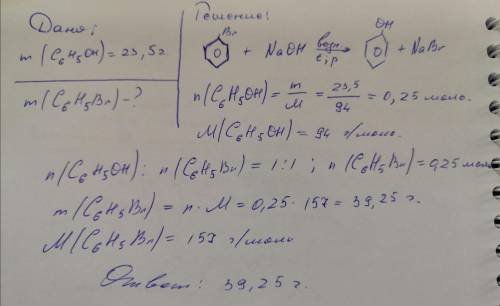 Дано:
m (C₆H₅OH) = 23,5 г.
m (C₆H₅Br) - ?
Решение:
Br + NaOH вода t; p → OH + NaBr
n(C₆H₅OH) = m/M = 23,5/94 = 0,25 моль.
M(C₆H₅OH) = 94 г/моль.
n(C₆H₅OH) : n(C₆H₅Br) = 1:1 ; n(C₆H₅Br) = 0,25 моль
m(C₆H₅Br) = n · M = 0,25 · 157 = 39,25 г.
M(C₆H₅Br) = 157 г/моль
Ответ: 39,25 г.